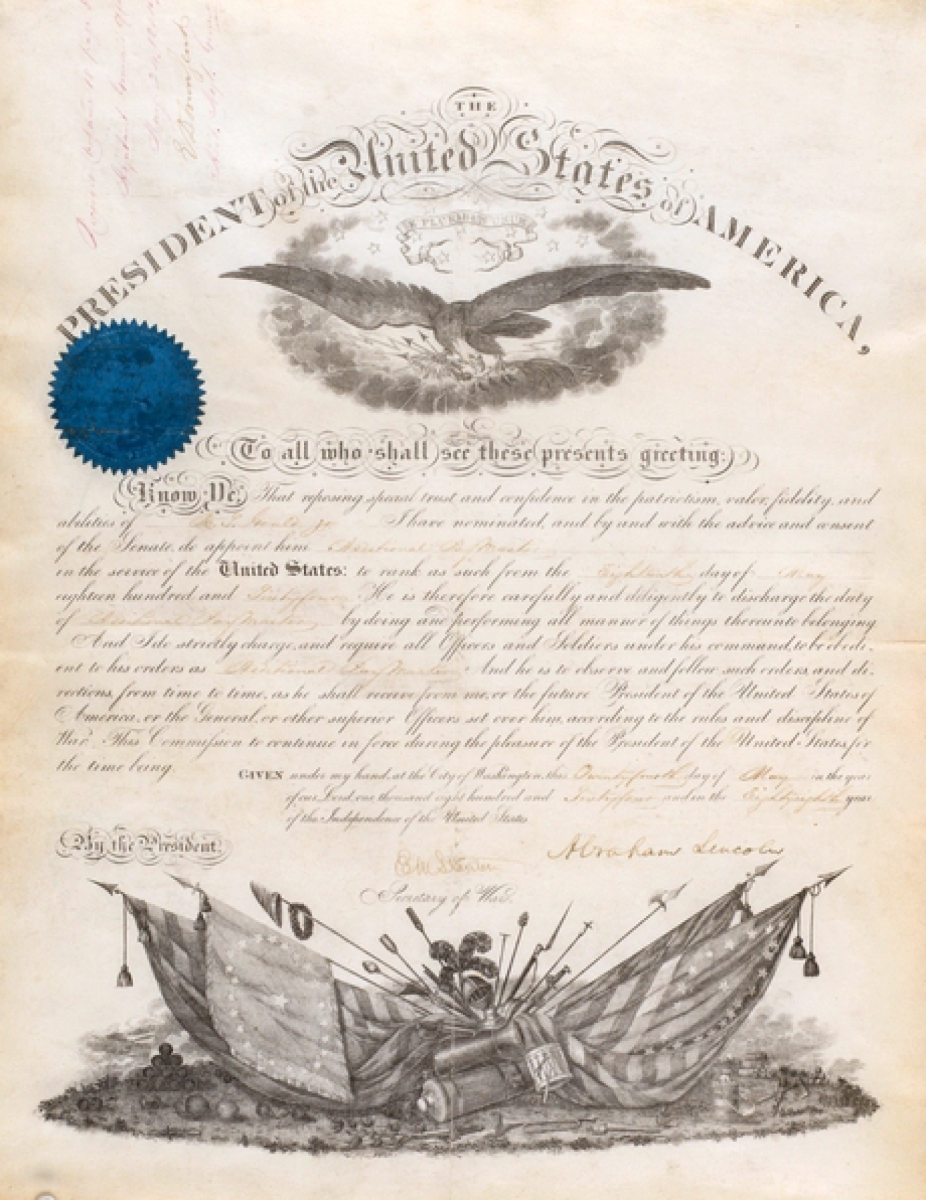 THE
PRESIDENT of the United States of AMERICA,
E PLURIBUS UNUM
To all who shall see these presents greeting:
Know Ye, That reposing special trust and confidence in the patriotism, valor, fidelity, and
abilities of I have nominated, and by and with the advice and consent
of the Senate, do appoint him Additional Paymaster
in the service of the United States: to rank as such from the Eighteenth day of May
eighteen hundred and Sixtyfour He is therefore carefully and diligently to discharge the duty
of Additional Paymaster by doing and performing all manner of things thereunto belonging
And I do strictly charge, and require all Officers and Soldiers under his command, to be obedi-
ent to his orders as Additional Paymaster And he is to observe and follow such orders, and di-
rections, from time to time, as he shall receive from me, or the future President of the United States of
America, or the General, or other superior Officers set over him, according to the rules and discipline of
War. This Commission to continue in force during the pleasure of the President of the United States, for
the time being.
GIVEN under my hand, at the City of Washington, this Twentyfourth day of May in the year
of our Lord, one thousand eight hundred and Sixtyfour and in the Eightyeighth year
of the Independence of the United States
By the President
Abraham Lincoln
Secretary of War.